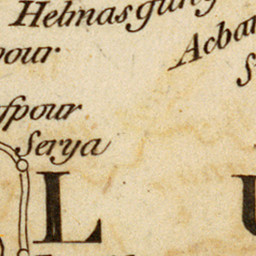 Helmasgung
Acbar
pour
fpour
Serya
L U